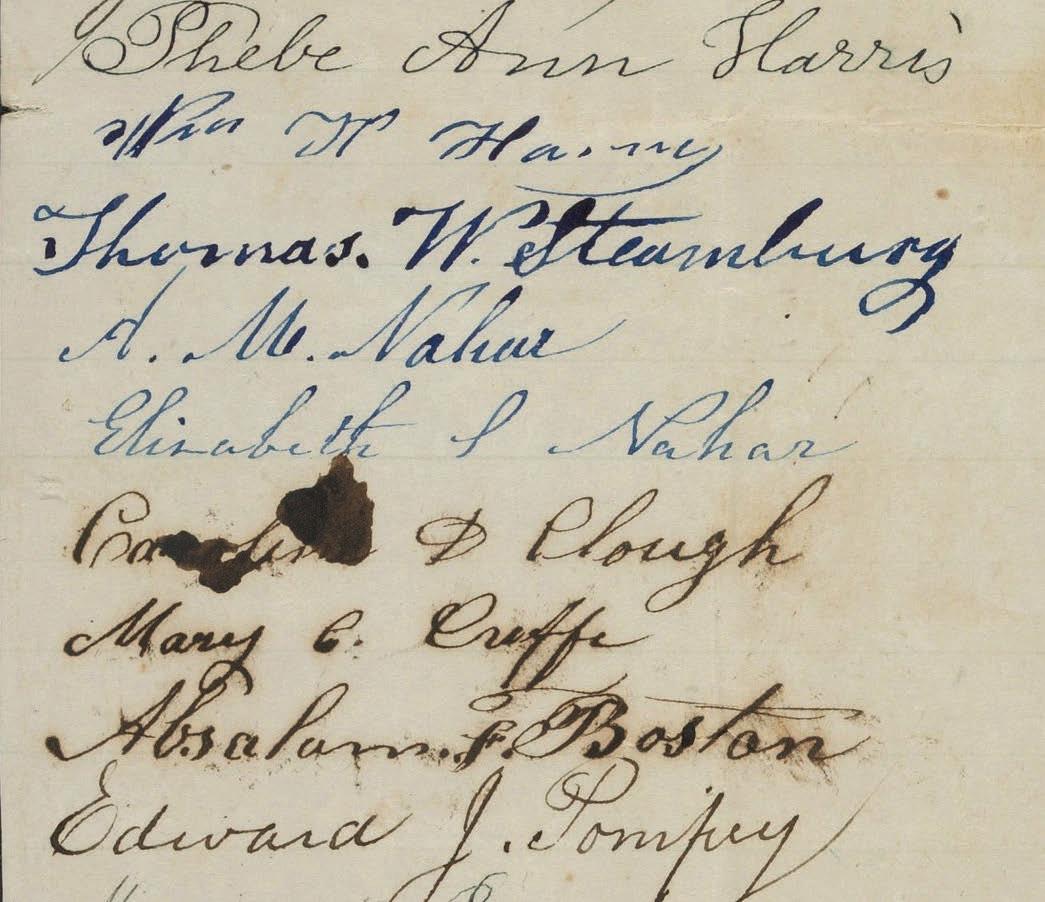 Phebe Ann Harris
Wm W
Thomas. W. Steamburg
A. M. Nahar
Elizabeth S Nahar
Caroline D Clough
Mary C. Cuffe
Absalom. F. Boston
Edward J. Pompey